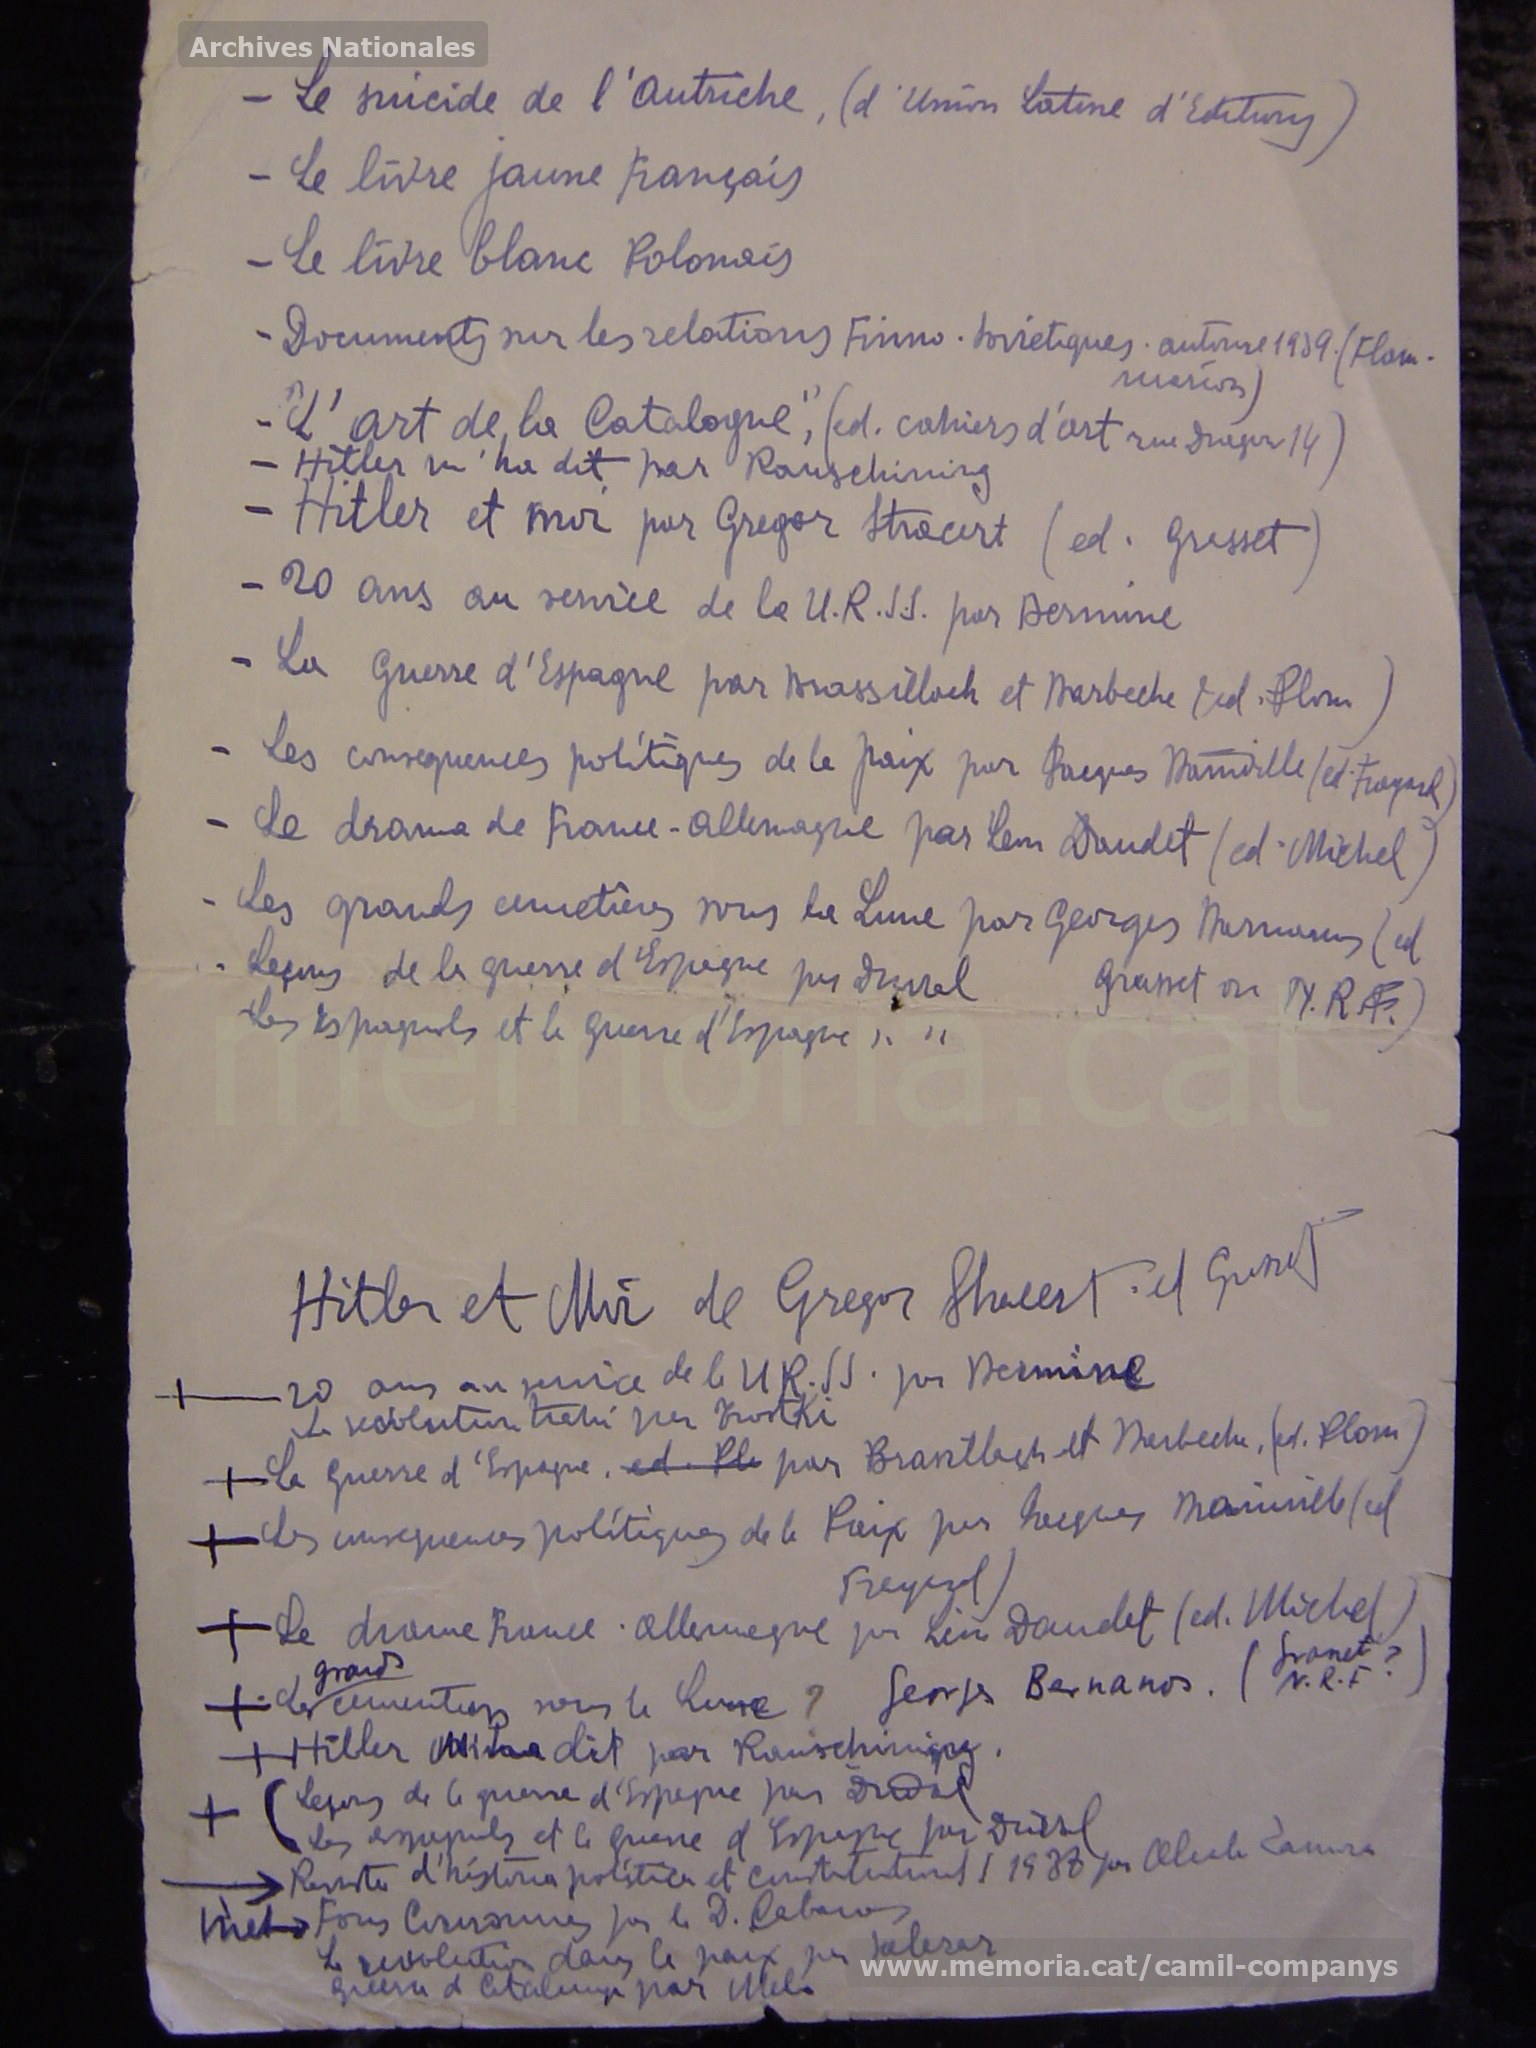 Archives Nationales
- Le suicide de l'Autriche, (d'Union Latine d'Editions)
- Le livre jaune Français
- Le livre blanc Polonais
- Documents sur les relations Finno-Soviétiques. automne 1939. (Flam-
marion)
- "L'art de la Catalogne", (ed. cahiers d'art rue Dragon 14)
- Hitler m'ha dit par Rauschining
- Hitler et moi par Gregor Stracert (ed. Grasset)
- 20 ans au service de la U.R.S.S. par Bermine
- La Guerre d'Espagne par Brassilloch et Barbeche (ed. Plom)
- Les consequences politiques de la paix par Jacques Bainville (ed. Fayard)
- Le drama de France-Allemagne par Leon Daudet (ed. Michel)
- Les grands cemetières sous la Lune par Georges Bernanos (ed
Grasset ou N.R.F.)
- Leçons de la guerre d'Espagne par Duval
Les Espagnols et la Guerre d'Espagne " "
memoria.cat
Hitler et Moi de Gregor Stracert. ed Grasset
+ 20 ans au service de la URSS. par Bermine
La revolution trahi par Trostki
+ La Guerre d'Espagne. ed. Pl par Brasillach et Barbeche, (ed. Plom)
+ Les consequences politiques de la Paix par Jacques Bainville (ed
Fayard)
+ Le drame France-Allemagne par Leon Daudet (ed. Michel)
+ Les grands cementieres sous la Lune ? Georges Bernanos. (Grasset ?
N.R.F)
+ Hitler dit par Rauschining.
+ (Leçons de la guerre d'Espagne par Duval
Les espagnols et la Guerre d'Espagne par Duval
→ d'história política et par Alcala Zamora
par le D. Cabanes
La revolution dans la paix par Salazar
Guerra d Catalunya par Melo
www.memoria.cat/camil-companys